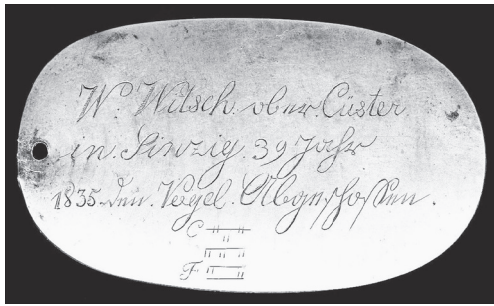 W. Witsch. ober. Cüster.
in. Sinzig. 39 Jahr
1835. den. Vogel. Abgeschossen.
C
F